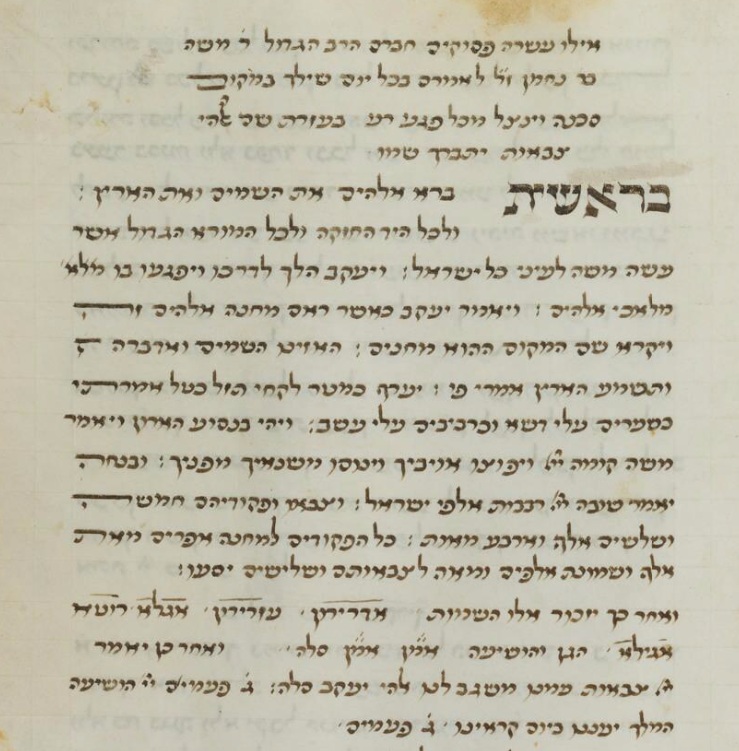 אילו עשרה פסוקים חברם הרב הגדול ר׳ משה
בר נחמן ז״ל לאומרם בכל יום שילך במקום
סכנה וינצל מכל פגע רע בעזרת שם אלהי
צבאות יתברך שמו׃
בראשית ברא אלהים את השמים ואת הארץ׃
ולכל היד החזקה ולכל המורא הגדול אשר
עשה משה לעיני כל ישראל׃ ויעקב הלך לדרכו ויפגעו בו מלא
מלאכי אלהים׃ ויאמר יעקב כאשר ראם מחנה אלהים זה
ויקרא שם המקום ההוא מחנים׃ האזינו השמים ואדברה
ותשמע הארץ אמרי פי׃ יערף כמטר לקחי תזל כטל אמרתי
כשערים עלי דשא וכרביבים עלי עשב׃ ויהי בנסוע הארון ויאמר
משה קומה ויפוצו אויביך וינוסו משנאיך מפניך׃ ובנחה
יאמר שובה רבבות אלפי ישראל׃ וצבאו ופקודיהם חמשה
ושלשים אלף וארבע מאות׃ כל הפקודים למחנה אפרים מאת
אלף ושמונת אלפים ומאה לצבאותם ושלישים יסעו׃
ואחר כך יזכור אלו השמות אדירירון עזרירון אגלא
הגן והושיעה אמן אמן סלה׃ ואחר כן יאמר
צבאות עמנו משגב לנו אלהי יעקב סלה׃ ג׳ פעמים יי׳ הושיעה
המלך יעננו ביום קראינו׃ ג׳ פעמים׃